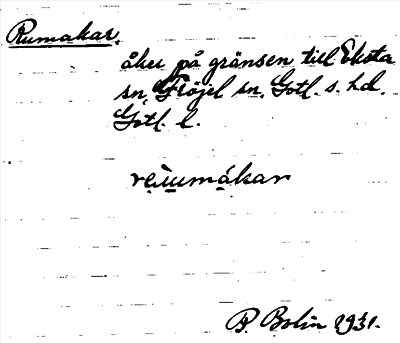 Rumakar.
åker på gränsen till Eksta
sn, Fröjel sn. Gotl. s. hd.
Gotl. l.
B. Bolin 1931.